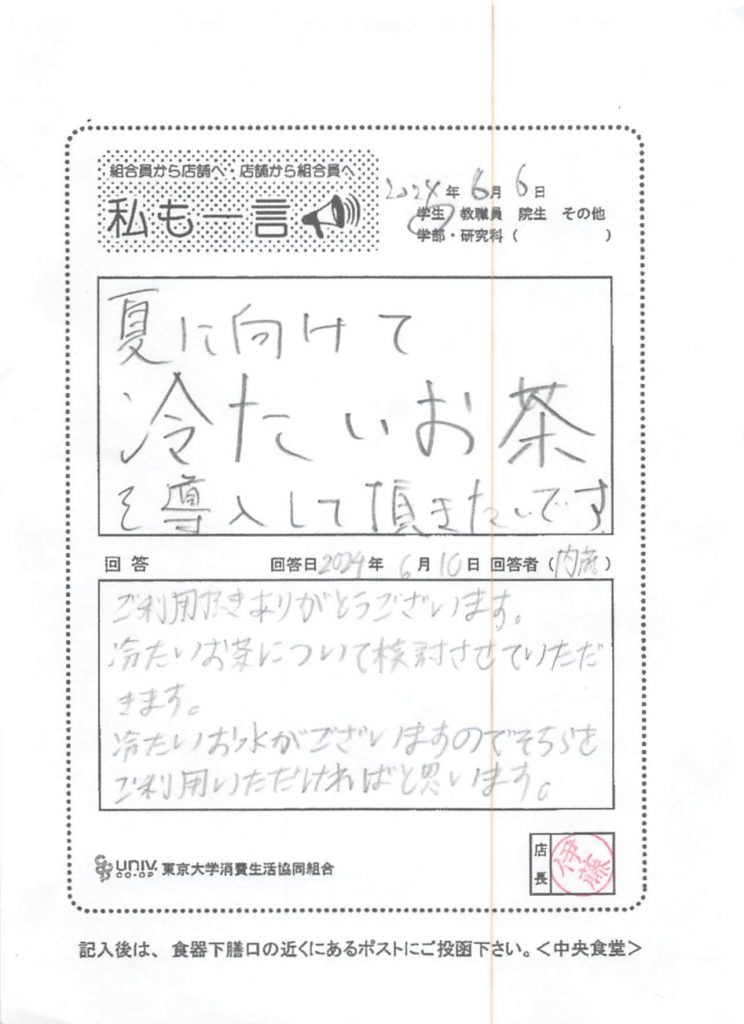 組合員から店舗へ・店舗から組合員へ
私も一言
2024年 6月 6日
学生 教職員 院生 その他
学部・研究科( )
夏に向けて
冷たいお茶
を導入して頂きたいです
回答 回答日2024年 6月10日 回答者(内藤)
ご利用頂きありがとうございます。
冷たいお茶について検討させていただ
きます。
冷たいお水がございますのでそちらを
ご利用いただければと思います。
UNIV. CO-OP 東京大学消費生活協同組合
店長 伊藤
記入後は、食器下膳口の近くにあるポストにご投函下さい。<中央食堂>